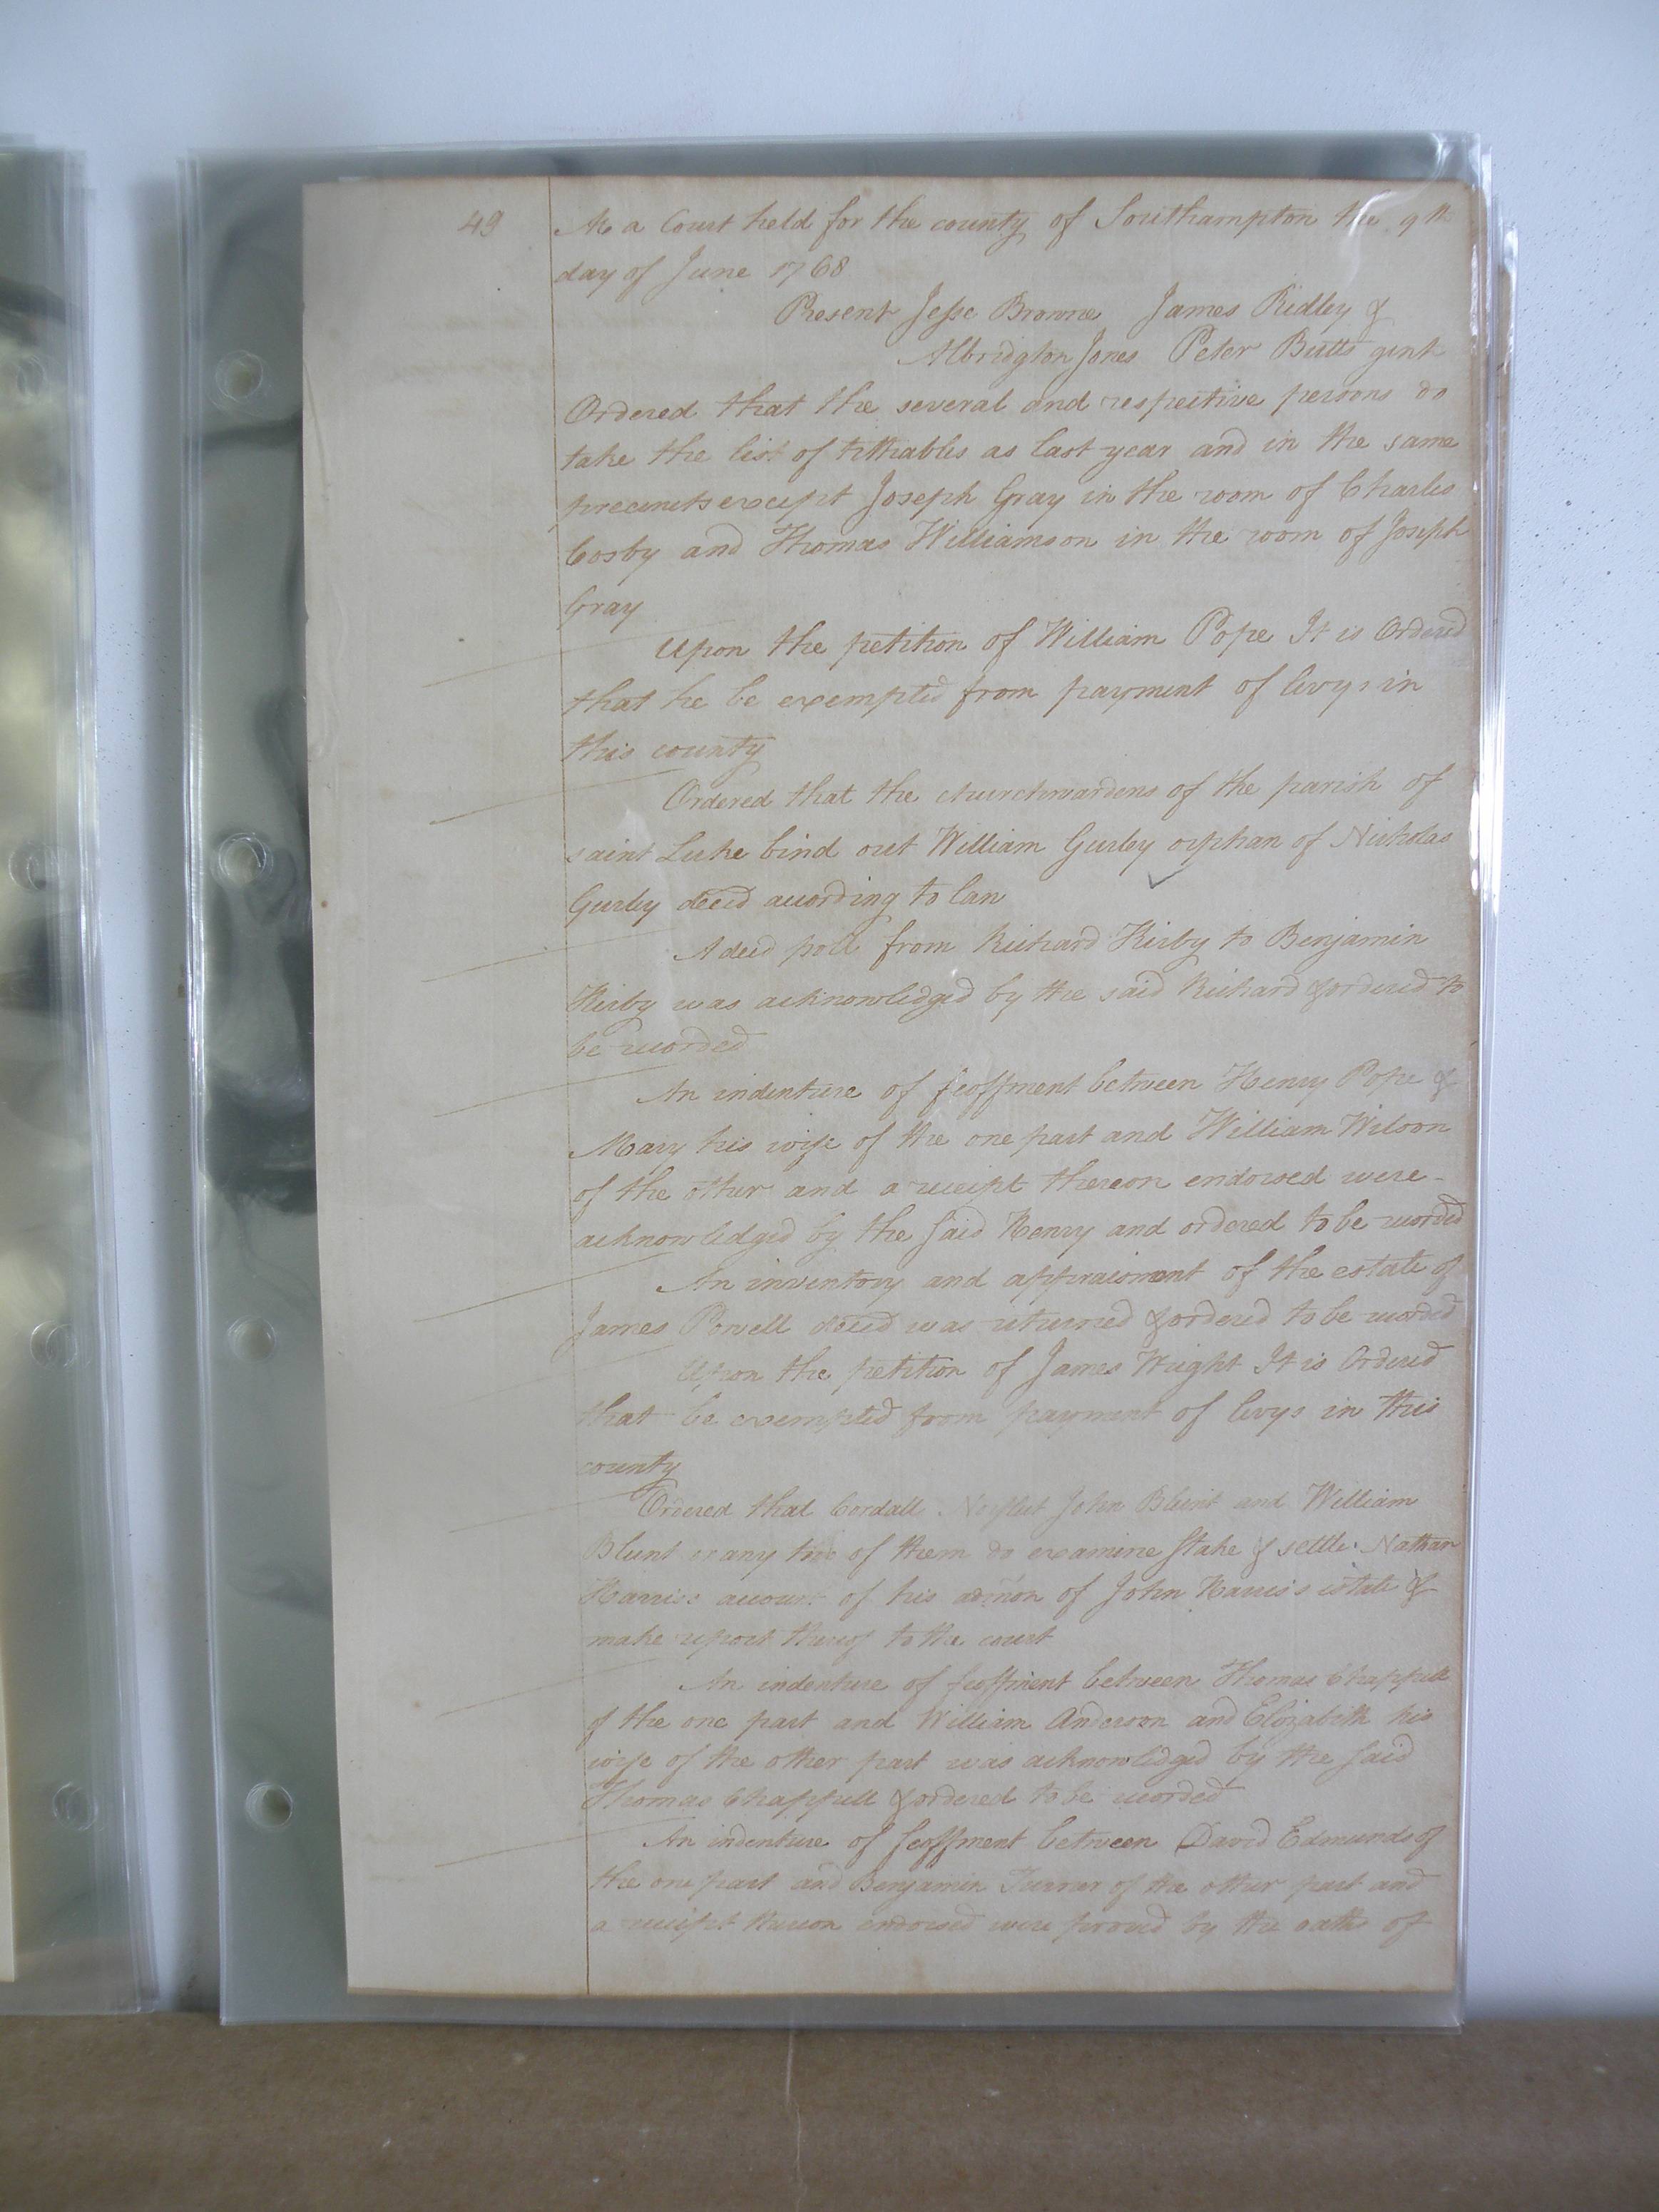 49
At a Court held for the county of Southampton the 9th
day of June 1768
Present Jesse Browne James Ridley &
Albridgton Jones Peter Butts gent
Ordered that the several and respective persons do
take the list of tithables as last year and in the same
precincts except Joseph Gray in the room of Charles
Cosby and Thomas Williamson in the room of Joseph
Gray
Upon the petition of William Pope It is Ordered
that he be exempted from payment of levys in
this county
Ordered that the churchwardens of the parish of
saint Luke bind out William Gurley orphan of Nicholas
Gurley decd according to law
A deed poll from Richard Kirby to Benjamin
Kirby was acknowledged by the said Richard & ordered to
be recorded
An indenture of feoffment between Henry Pope &
Mary his wife of the one part and William Wilson
of the other and a receipt thereon endorsed were
acknowledged by the said Henry and ordered to be recorded
An inventory and appraisment of the estate of
James Powell decd was returned & ordered to be recorded
Upon the petition of James Wright It is Ordered
that be exempted from payment of levys in this
county
Ordered that Cordall Norfleet John Blunt and William
Blunt or any two of them do examine state & settle Nathan
Harris's account of his admon of John Harris's estate &
make report thereof to the court
An indenture of feoffment between Thomas Chappell
of the one part and William Anderson and Elizabeth his
wife of the other part was acknowledged by the said
Thomas Chappell & ordered to be recorded
An indenture of feoffment between David Edmunds of
the one part and Benjamin Turner of the other part and
a receipt thereon endorsed were proved by the oaths of